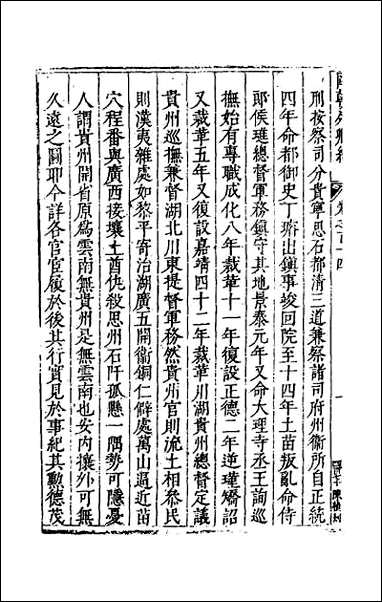 刑按察司分貴寧思石都清三道兼察諸司府州衞所自正統
四年命都御史丁璿出鎮事竣回院至十四年土苗叛亂命侍
郎侯璡總督軍務鎮守其地景泰元年又命大理寺丞王詢巡
撫始有專職成化八年裁革十一年復設正德二年逆瑾矯詔
又裁革五年又復設嘉靖四十二年裁革川湖貴州總督定議
貴州巡撫兼督湖北川東提督軍務然貴州官則流土相叅民
則漢夷雜處如黎平寄治湖廣五開衞銅仁僻處萬山逼近苗
穴程番與廣西接壤土酋仇殺思州石阡孤懸一隅勢可隱憂
人謂貴州開省原爲雲南無貴州是無雲南也安内攘外可無
久遠之圖耶今詳各官宦履於後其行實見於事紀其勲德茂